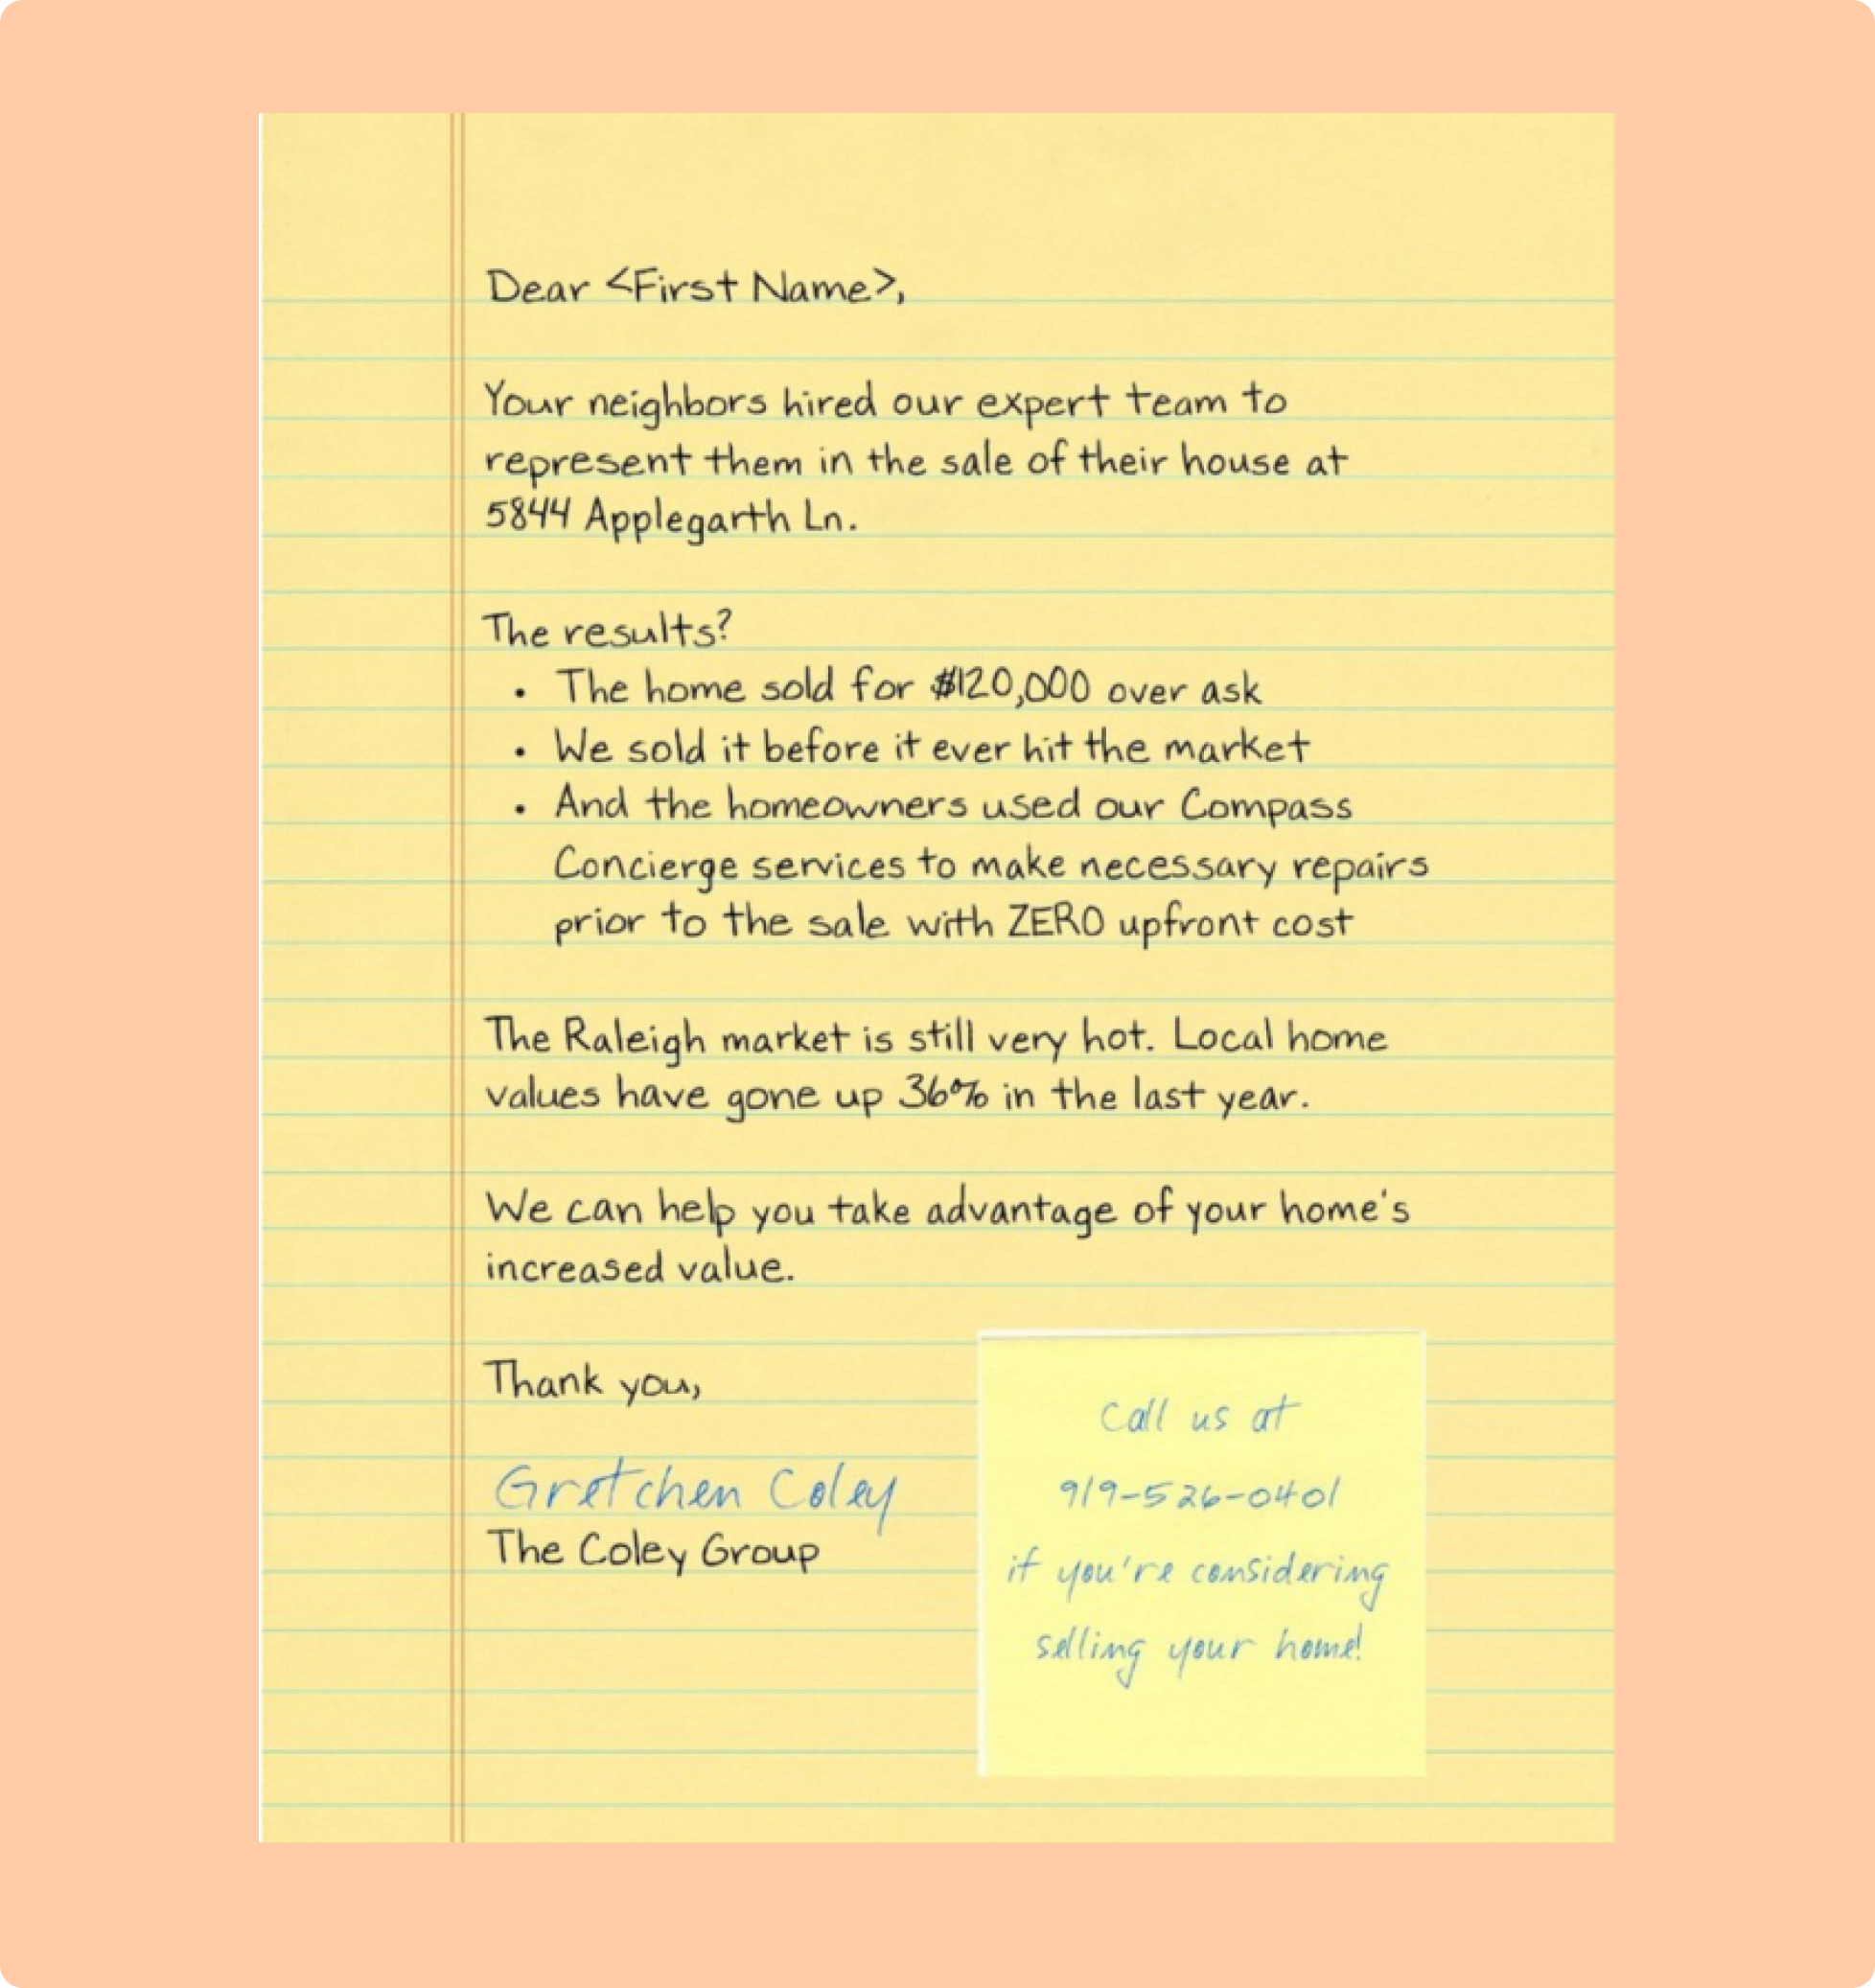 Dear <First Name>,
Your neighbors hired our expert team to
represent them in the sale of their house at
5844 Applegarth Ln.
The results?
• The home sold for $120,000 over ask
• We sold it before it ever hit the market
• And the homeowners used our Compass
Concierge services to make necessary repairs
prior to the sale with ZERO upfront cost
The Raleigh market is still very hot. Local home
values have gone up 36% in the last year.
We can help you take advantage of your home's
increased value.
Thank you,
Gretchen Coley
The Coley Group
Call us at
919-526-0401
if you're considering
selling your home!